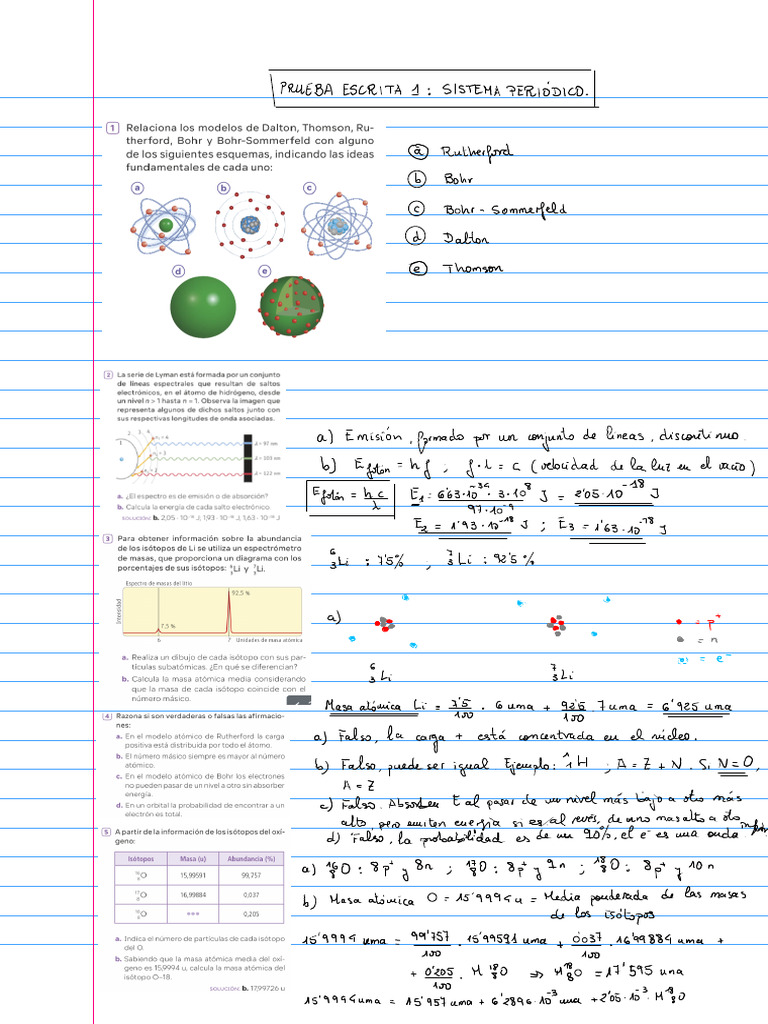 PRUEBA ESCRITA 1: SISTEMA PERIÓDICO.
1 Relaciona los modelos de Dalton, Thomson, Ru-
therford, Bohr y Bohr-Sommerfeld con alguno
de los siguientes esquemas, indicando las ideas
fundamentales de cada uno:
a b c
d e
a Rutherford
b Bohr
c Bohr - Sommerfeld
d Dalton
e Thomson
2 La serie de Lyman está formada por un conjunto
de líneas espectrales que resultan de saltos
electrónicos, en el átomo de hidrógeno, desde
un nivel n > 1 hasta n = 1. Observa la imagen que
representa algunos de dichos saltos junto con
sus respectivas longitudes de onda asociadas.
λ = 97 nm
λ = 103 nm
λ = 122 nm
a. ¿El espectro es de emisión o de absorción?
b. Calcula la energía de cada salto electrónico.
SOLUCIÓN: b. 2,05 · 10⁻¹⁸ J, 1,93 · 10⁻¹⁸ J, 1,63 · 10⁻¹⁸ J
a) Emisión, formado por un conjunto de líneas, discontinuo.
b) E fotón = h f ; f · λ = c (velocidad de la luz en el vacío)
E fotón = h c / λ E1 = 6'63·10⁻³⁴ · 3·10⁸ / 97·10⁻⁹ J = 2'05·10⁻¹⁸ J
E2 = 1'93·10⁻¹⁸ J ; E3 = 1'63·10⁻¹⁸ J
3 Para obtener información sobre la abundancia
de los isótopos de Li se utiliza un espectrómetro
de masas, que proporciona un diagrama con los
porcentajes de sus isótopos: ⁶₃Li y ⁷₃Li.
Espectro de masas del litio
Intensidad
92,5 %
7,5 %
6 7 Unidades de masa atómica
a. Realiza un dibujo de cada isótopo con sus par-
tículas subatómicas. ¿En qué se diferencian?
b. Calcula la masa atómica media considerando
que la masa de cada isótopo coincide con el
número másico.
⁶₃Li : 7'5% , ⁷₃Li : 92'5 %
a)
= p⁺
= n
= e⁻
⁶₃Li ⁷₃Li
Masa atómica Li = 7'5/100 · 6 uma + 92'5/100 · 7 uma = 6'925 uma
4 Razona si son verdaderas o falsas las afirmacio-
nes:
a. En el modelo atómico de Rutherford la carga
positiva está distribuida por todo el átomo.
b. El número másico siempre es mayor al número
atómico.
c. En el modelo atómico de Bohr los electrones
no pueden pasar de un nivel a otro sin absorber
energía.
d. En un orbital la probabilidad de encontrar a un
electrón es total.
a) Falso, la carga + está concentrada en el núcleo.
b) Falso, puede ser igual Ejemplo: ¹₁H ; A = Z + N. Si N = 0,
A = Z
c) Falso. Absorben E al pasar de un nivel más bajo a otro más
alto, pero emiten energía si es al revés, de uno más alto a otro
d) Falso, la probabilidad es de un 90%, el e⁻ es una onda
5 A partir de la información de los isótopos del oxí-
geno:
Isótopos Masa (u) Abundancia (%)
¹⁶₈O 15,99591 99,757
¹⁷₈O 16,99884 0,037
¹⁸₈O *** 0,205
a. Indica el número de partículas de cada isótopo
del O.
b. Sabiendo que la masa atómica media del oxí-
geno es 15,9994 u, calcula la masa atómica del
isótopo O-18.
SOLUCIÓN: b. 17,99726 u
a) ¹⁶₈O : 8p⁺ y 8n ; ¹⁷₈O : 8p⁺ y 9n ; ¹⁸₈O : 8p⁺ y 10n
b) Masa atómica O = 15'9994 u = Media ponderada de las masas
de los isótopos
15'9994 uma = 99'757/100 · 15'99591 uma + 0'037/100 · 16'99884 uma +
+ 0'205/100 · M ¹⁸₈O ⇒ M ¹⁸₈O = 17'595 uma
15'9994 uma = 15'957 uma + 6'2896·10⁻³ uma + 2'05·10⁻³ · M ¹⁸₈O